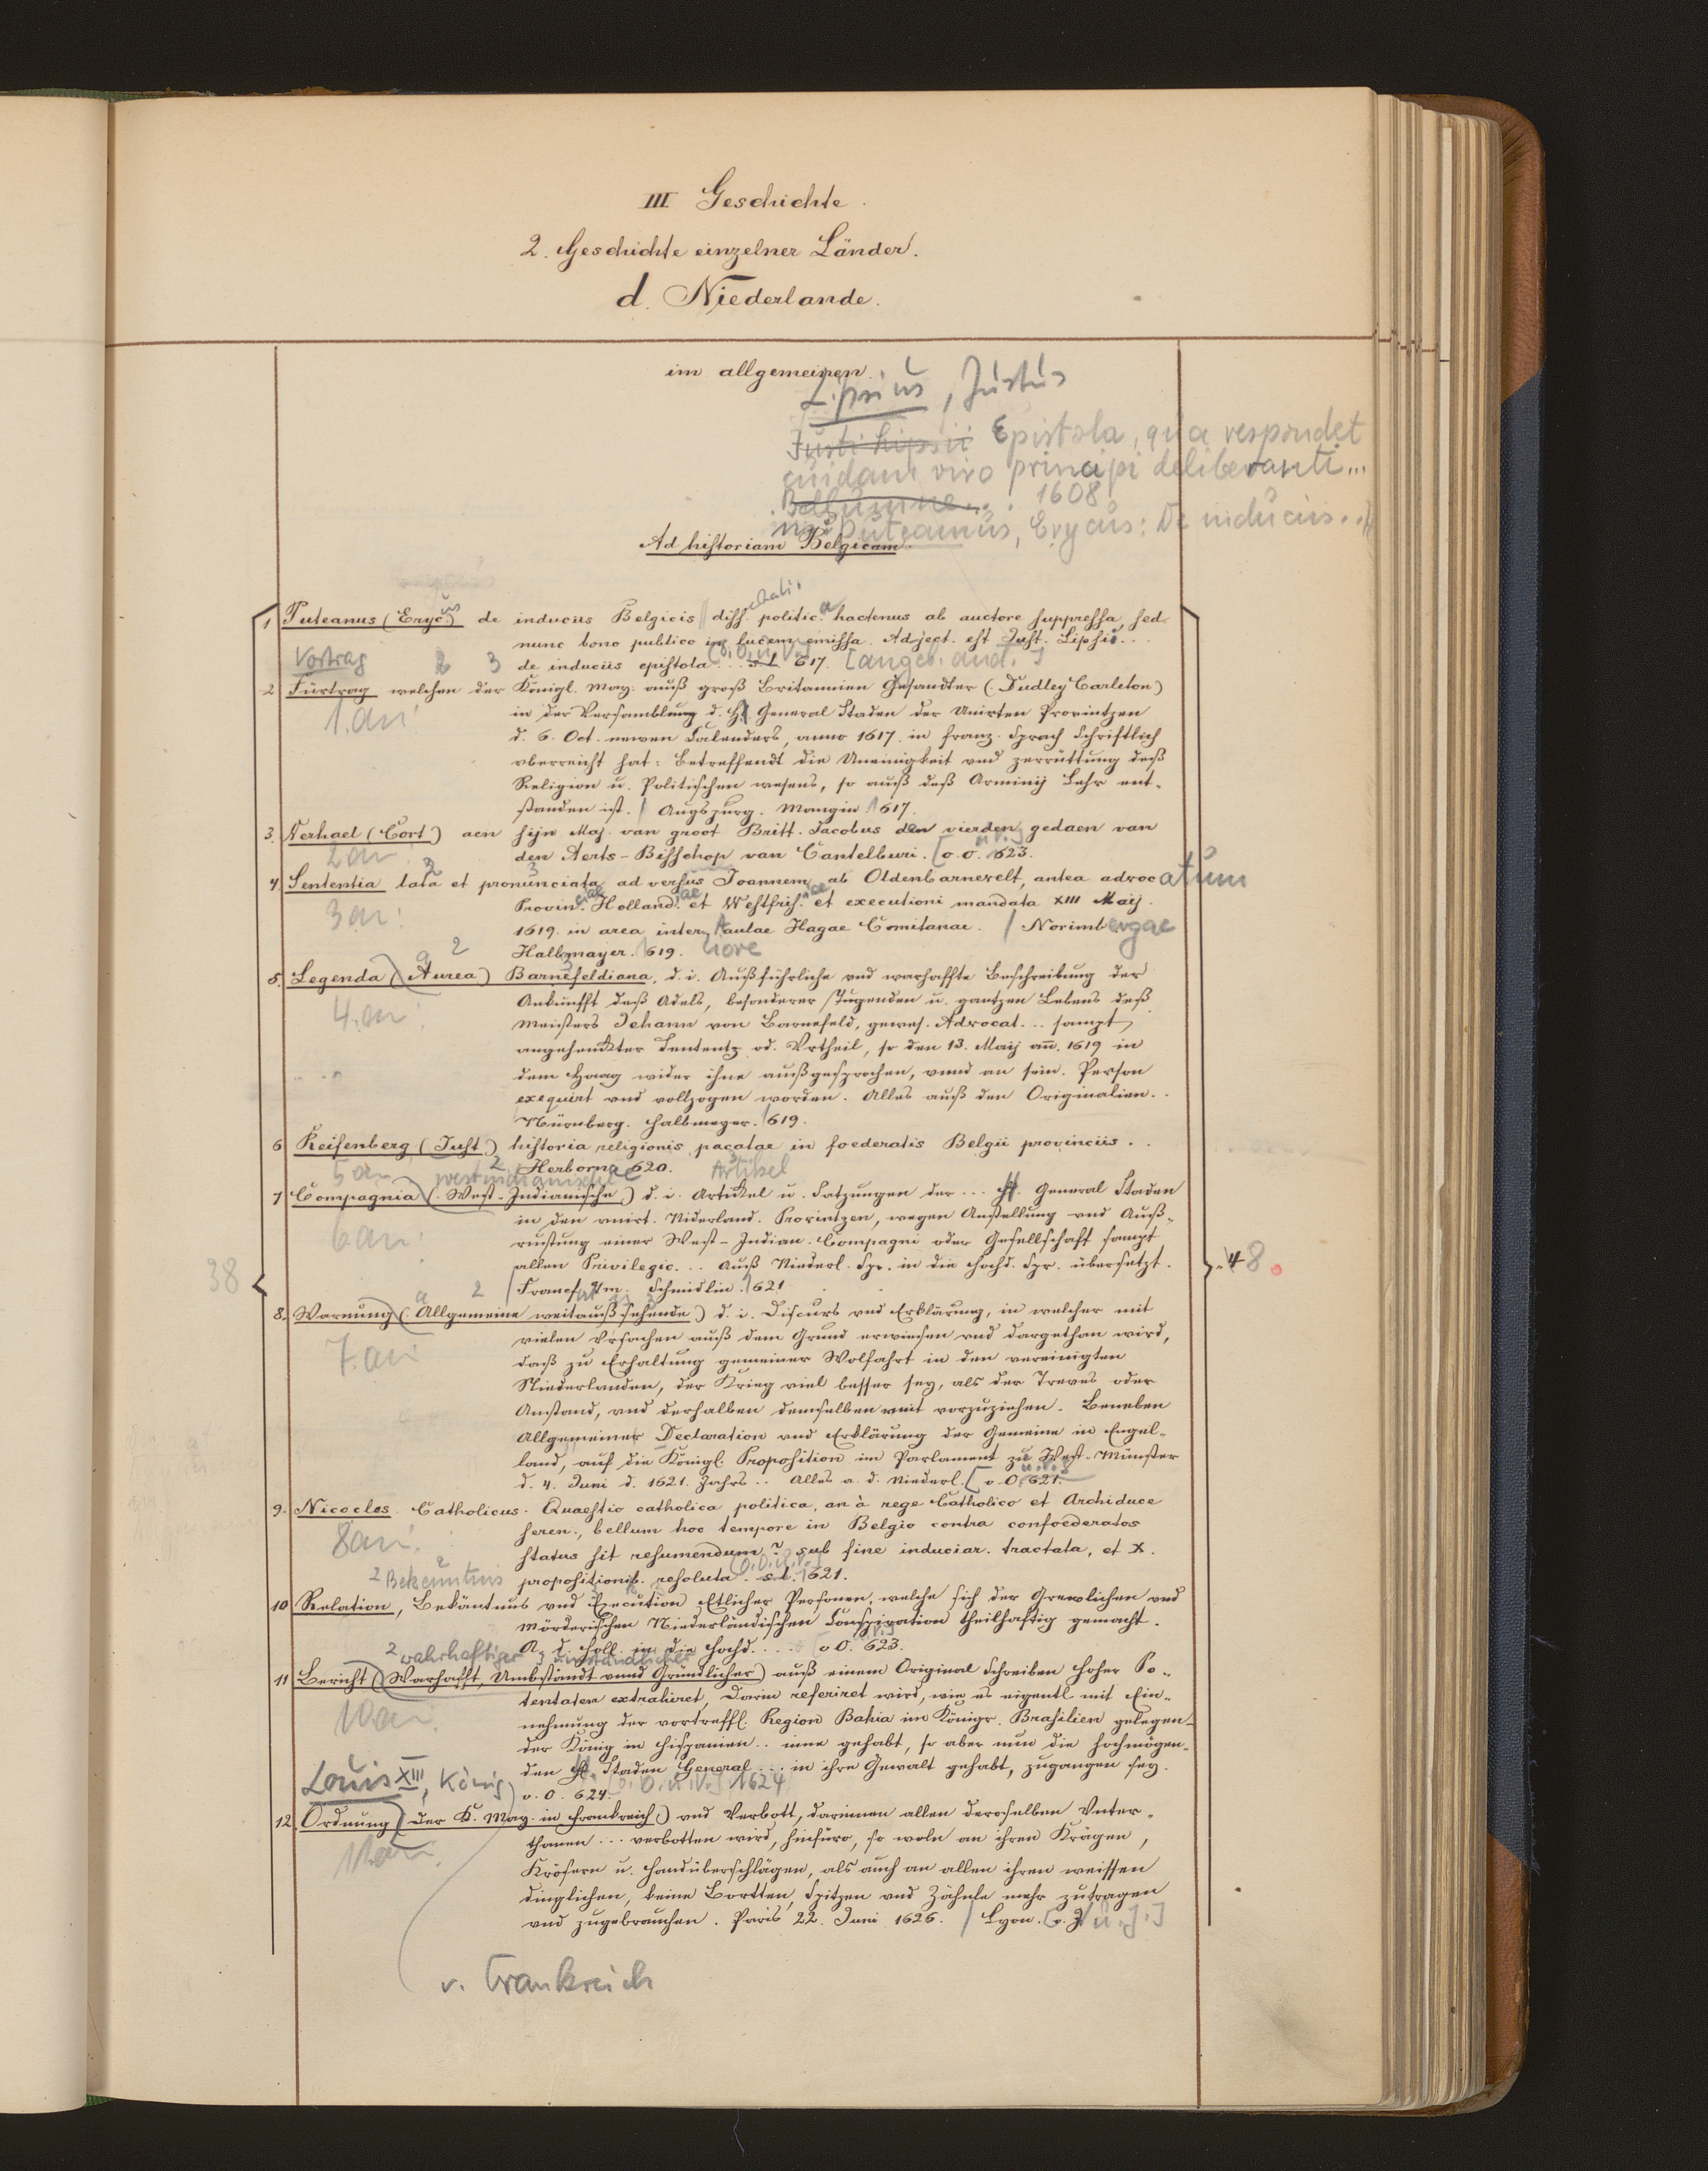 III Geschichte.
2. Geschichte einzelner Länder.
d. Niederlande.
im allgemeinen.
Lipsius, Justus
Justi Lipsii Epistola, qua respondet
cuidam viro principi deliberanti...
Bellumne... 1608
Puteanus, Erycus: De induciis...
Ad historiam Belgicam.
1 Puteanus (Eryc.us) de induciis Belgicis diss.ertati. politic.a hactenus ab auctore suppressa, sed
nunc bono publico in lucem emissa. Adject. est Just. Lipsii...
Vortrag 2 3 de induciis epistola... s.l. 617. [o.O.u.V.] [angeb. and.]
2 Fürtrag welchen der Königl. May. auß groß Britannien Gesandter (Dudley Carleton)
1.an: in der Versamblung d. H. General Staden der Unirten Provintzen
d. 6. Oct. newen Calenders, anno 1617. in franz. Sprach Schriftlich
vberreicht hat: Betreffendt die Uneinigkeit vnd zerrüttung deß
Religion u. Politischen wesens, so auß deß Arminij Lehr ent-
standen ist. / Augspurg. Mangin 1617.
3. Verhael (Cort) aen sijn Maj. van groot Britt. Jacobus den vierden gedaen van
2 an: den Aerts-Bisschop van Cantelburi. [o.O. 623.
4. Sententia lata et pronunciata adversus Joannem ab Oldenbarnevelt, antea advocatum
3 an: Provin.ciae Holland.iae et Westfris.iae et executioni mandata XIII Maij.
1619. in area inter. Aaulae Hagae Comitanae. / Norimbergae
Halbmayer. 1619.
5. Legenda (Aurea) Barnefeldiana, d. i. Außführliche vnd warhaffte Beschreibung der
4.an: Ankunfft deß Adels, besonderer Tugenden u. gantzen Lebens deß
Meisters Johann von Barnefeld, gewes. Advocat... sampt
angehenckter Sententz od. Vrtheil, so den 13. Maij an̄. 1619 in
dem Haag wider ihne außgesprochen, vnnd an sein. Person
exequirt vnd vollzogen worden. Alles auß den Originalien..
Nürnberg. Halbmayer. 1619.
6 Reifenberg (Just.) historia religionis pacatae in foederatis Belgii provinciis..
5 an Herborna 620. Artikel
westindianische
7 Compagnia (West-Indianische) d. i. Artickel u. Satzungen der... H. General Staden
6 an: in den vnirt. Niderland. Provintzen, wegen Anstellung vnd Auß-
rustung einer West-Indian. Compagni oder Gesellschaft sampt
38 allen Privilegie... Auß Niederl. Spr. in die Hochd. Spr. übersetzt. 48.
Francf.urt/m. Schmidlin. 1621
8. Warnung (Allgemeine weitauß sehende) d. i. Discurs vnd Erklärung, in welcher mit
7.an vielen Vrsachen auß dem Grund erwiesen vnd dargethan wird,
daß zu Erhaltung gemeiner Wolfahrt in den vereinigten
Niederlanden, der Krieg viel besser sey, als der Treves oder
Anstand, vnd derhalben demselben weit vorzuziehen. Beneben
Allgemeiner Declaration vnd Erklärung der Gemeine in Engel-
land, auf die Königl. Proposition im Parlament zu West-Münster
d. 4. Juni d. 1621. Jahrs... Alles a. d. Niederl. [o.O. 621.
9. Nicocles Catholicus. Quaestio catholica politica, an à rege Catholico et Archiduce
8an: seren., bellum hoc tempore in Belgio contra confoederatos
status sit resumendum? sub fine induciar. tractata, et X.
2 Bekenntnis propositionib. resoluta. s.l. 1621. [o.O.u.V.]
10 Relation, Bekäntnus vnd Execution Etlicher Personen, welche sich der Grewlichen vnd
mörderischen Niederländischen Conspiration theilhaftig gemacht.
A. d. Holl. in die Hochd.... o O. 623.
2 wahrhaftiger 3 umständlicher
11 Bericht (Warhafft, Umbständt vnnd Gründlicher) auß einem Original Schreiben hoher Po-
10an: tentaten extrahiret, Darin referiret wird, wie es eigentl. mit Ein-
nehmung der vortreffl. Region Bahia im Königr. Brasilien gelegen
der König in Hispanien.. inne gehabt, so aber nun die Hochmögen-
den H. Staden General... in ihre Gewalt gehabt, zugangen sey.
Louis XIII, König o. O. 624. [o.O.u.V.] 1624
12. Ordnung (der K. May. in Frankreich) vnd Verbott, darinnen allen deroselben Vnter-
11an: thanen... verbotten wird, hinfüro, so woln an ihren Krägen,
Krösern u. Handüberschlägen, als auch an allen ihren weissen
dinglichen, keine Bortten, Spitzen vnd Zähnle mehr zutragen
vnd zugebrauchen. Paris 22. Juni 1626. / Lyon. [o. J.]
v. Frankreich